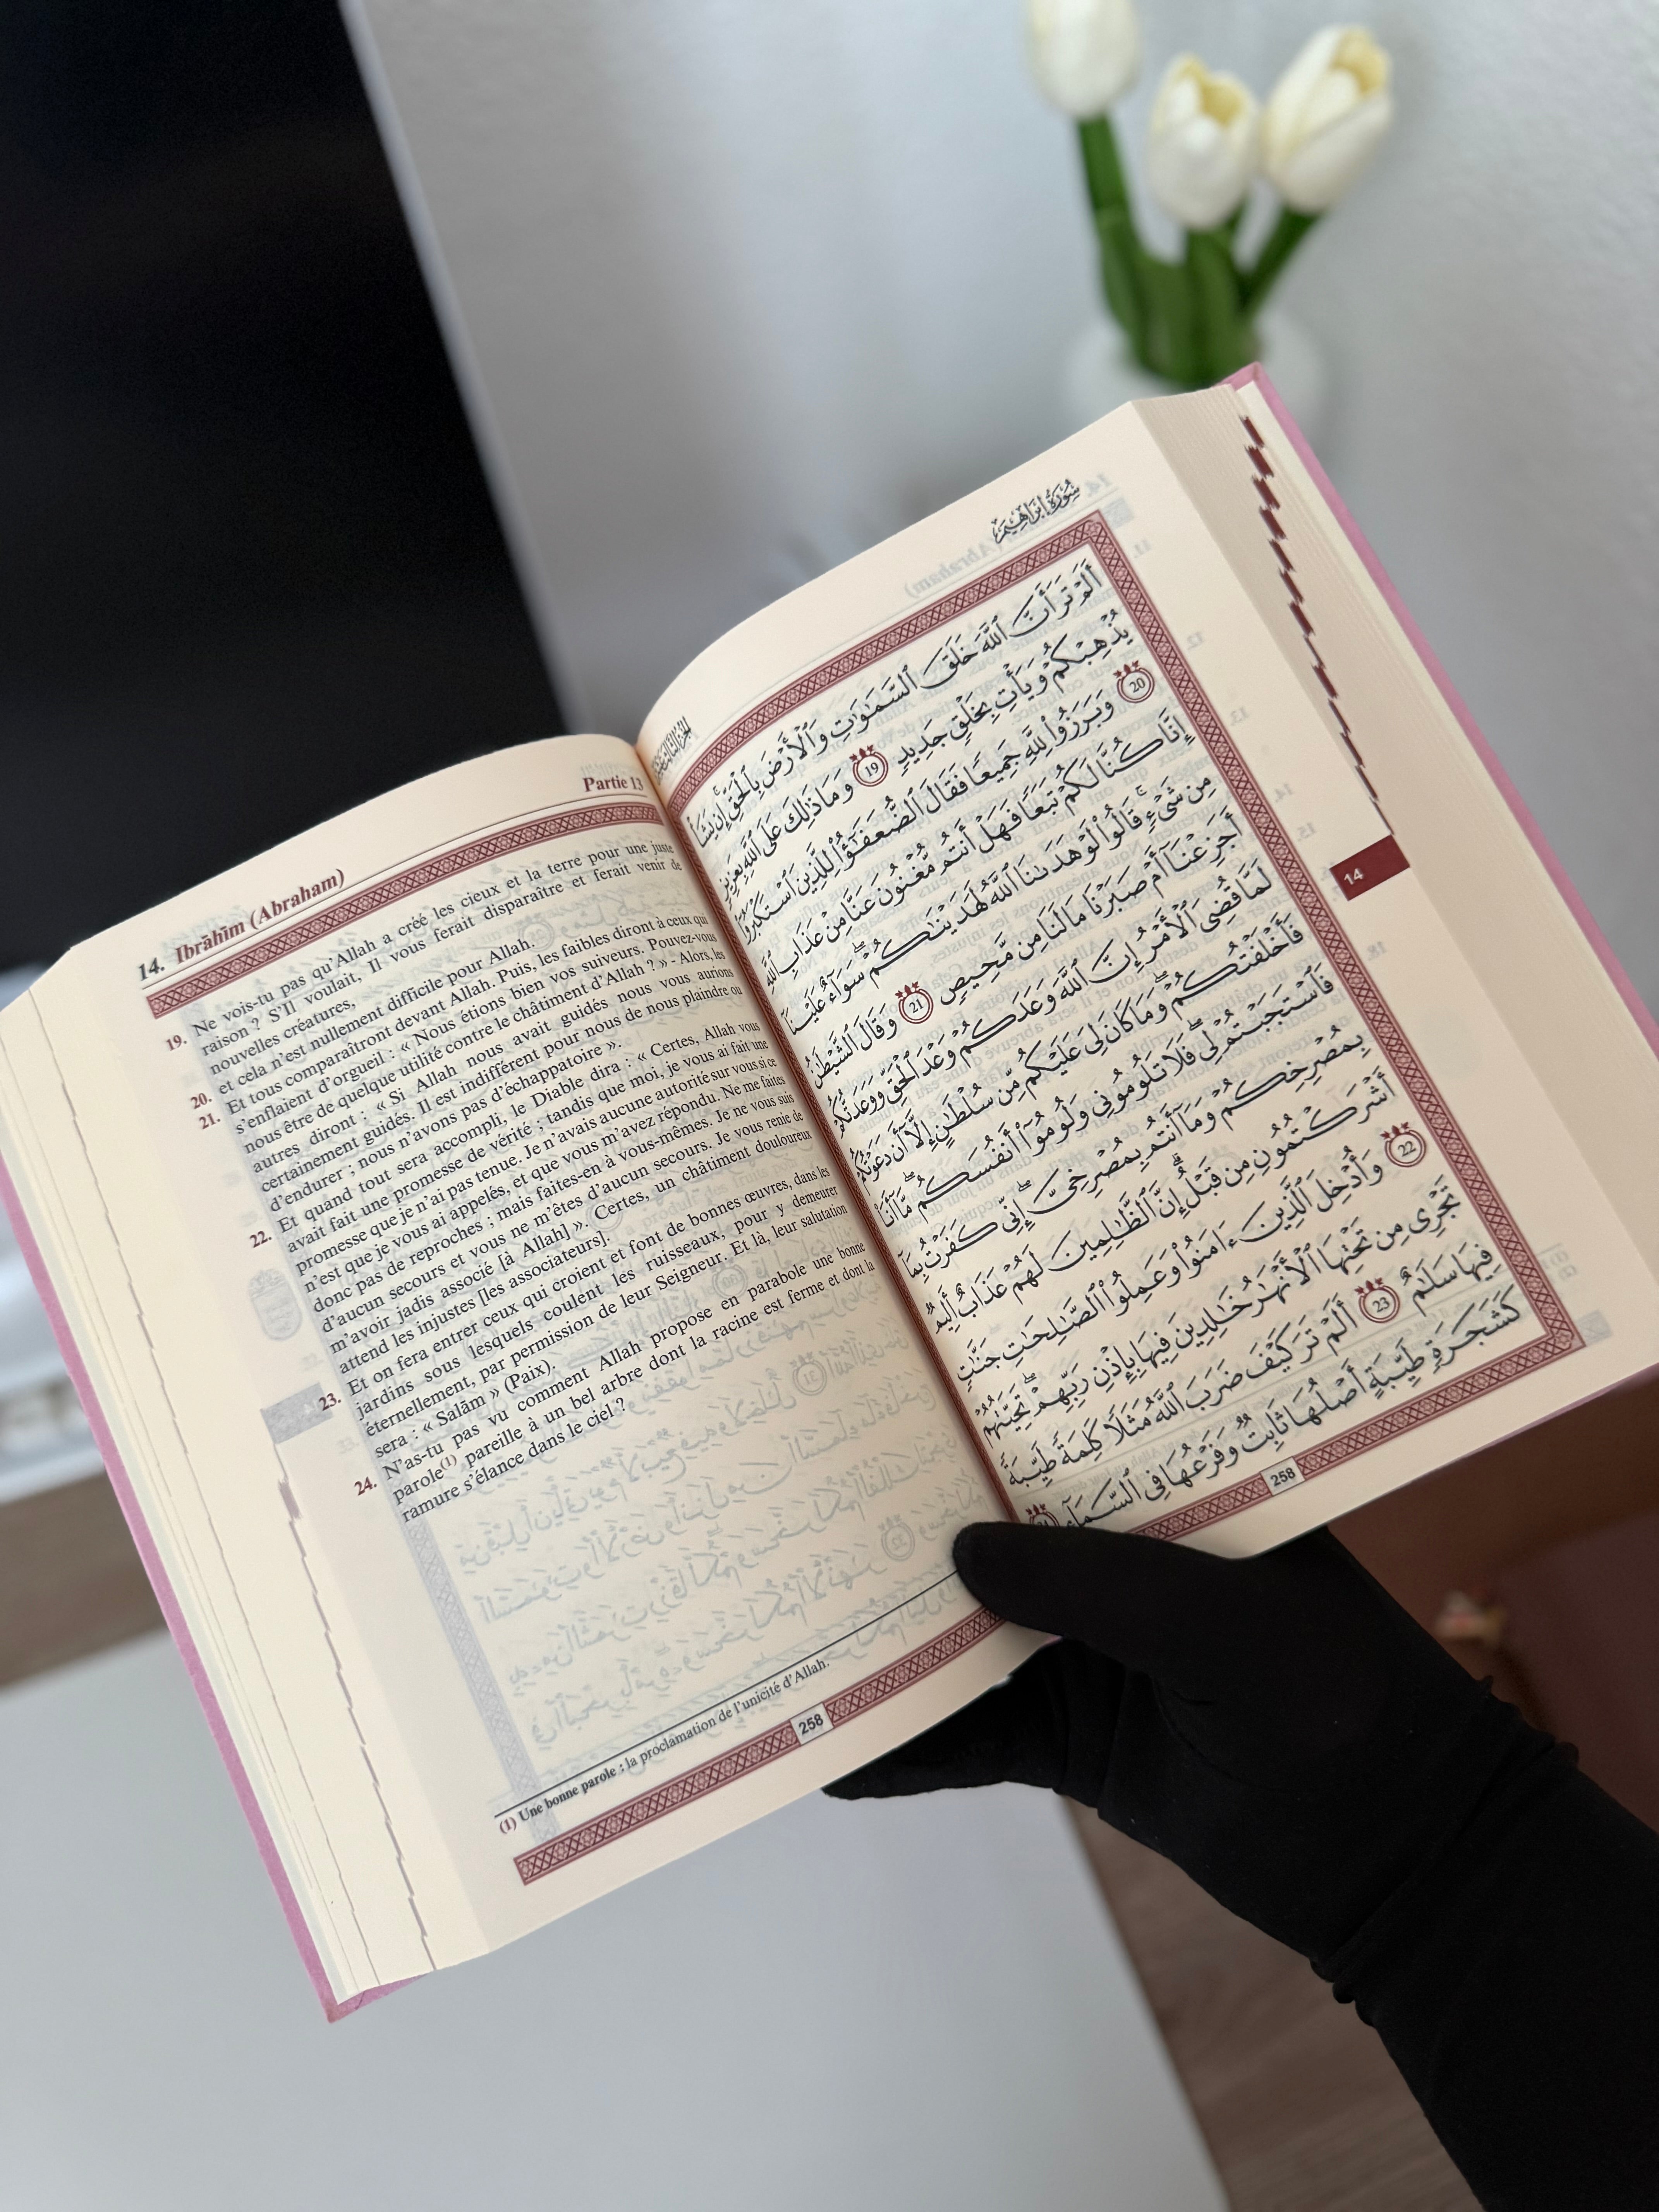 14. Ibrāhīm (Abraham)
Partie 13
19. Ne vois-tu pas qu'Allah a créé les cieux et la terre pour une juste
raison ? S'Il voulait, Il vous ferait disparaître et ferait venir de
nouvelles créatures,
20. et cela n'est nullement difficile pour Allah.
21. Et tous comparaîtront devant Allah. Puis, les faibles diront à ceux qui
s'enflaient d'orgueil : « Nous étions bien vos suiveurs. Pouvez-vous
nous être de quelque utilité contre le châtiment d'Allah ? » - Alors, les
autres diront : « Si Allah nous avait guidés nous vous aurions
certainement guidés. Il est indifférent pour nous de nous plaindre ou
d'endurer ; nous n'avons pas d'échappatoire ».
22. Et quand tout sera accompli, le Diable dira : « Certes, Allah vous
avait fait une promesse de vérité ; tandis que moi, je vous ai fait une
promesse que je n'ai pas tenue. Je n'avais aucune autorité sur vous si ce
n'est que je vous ai appelés, et que vous m'avez répondu. Ne me faites
donc pas de reproches ; mais faites-en à vous-mêmes. Je ne vous suis
d'aucun secours et vous ne m'êtes d'aucun secours. Je vous renie de
m'avoir jadis associé [à Allah] ». Certes, un châtiment douloureux
attend les injustes [les associateurs].
23. Et on fera entrer ceux qui croient et font de bonnes œuvres, dans les
jardins sous lesquels coulent les ruisseaux, pour y demeurer
éternellement, par permission de leur Seigneur. Et là, leur salutation
sera : « Salām » (Paix).
24. N'as-tu pas vu comment Allah propose en parabole une bonne
parole(1) pareille à un bel arbre dont la racine est ferme et dont la
ramure s'élance dans le ciel ?
(1) Une bonne parole : la proclamation de l'unicité d'Allah.
258
سُورَةُ إِبْرَاهِيم
أَلَمْ تَرَ أَنَّ ٱللَّهَ خَلَقَ ٱلسَّمَٰوَٰتِ وَٱلْأَرْضَ بِٱلْحَقِّ ۚ إِن يَشَأْ
يُذْهِبْكُمْ وَيَأْتِ بِخَلْقٍ جَدِيدٍ 19 وَمَا ذَٰلِكَ عَلَى ٱللَّهِ بِعَزِيزٍ
20 وَبَرَزُوا۟ لِلَّهِ جَمِيعًا فَقَالَ ٱلضُّعَفَٰٓؤُا۟ لِلَّذِينَ ٱسْتَكْبَرُوٓا۟
إِنَّا كُنَّا لَكُمْ تَبَعًا فَهَلْ أَنتُم مُّغْنُونَ عَنَّا مِنْ عَذَابِ ٱللَّهِ
مِن شَىْءٍ ۚ قَالُوا۟ لَوْ هَدَىٰنَا ٱللَّهُ لَهَدَيْنَٰكُمْ ۖ سَوَآءٌ عَلَيْنَآ
أَجَزِعْنَآ أَمْ صَبَرْنَا مَا لَنَا مِن مَّحِيصٍ 21 وَقَالَ ٱلشَّيْطَٰنُ
لَمَّا قُضِىَ ٱلْأَمْرُ إِنَّ ٱللَّهَ وَعَدَكُمْ وَعْدَ ٱلْحَقِّ وَوَعَدتُّكُمْ
فَأَخْلَفْتُكُمْ ۖ وَمَا كَانَ لِىَ عَلَيْكُم مِّن سُلْطَٰنٍ إِلَّآ أَن دَعَوْتُكُمْ
فَٱسْتَجَبْتُمْ لِى ۖ فَلَا تَلُومُونِى وَلُومُوٓا۟ أَنفُسَكُم ۖ مَّآ أَنَا۠
بِمُصْرِخِكُمْ وَمَآ أَنتُم بِمُصْرِخِىَّ ۖ إِنِّى كَفَرْتُ بِمَآ
أَشْرَكْتُمُونِ مِن قَبْلُ ۗ إِنَّ ٱلظَّٰلِمِينَ لَهُمْ عَذَابٌ أَلِيمٌ
22 وَأُدْخِلَ ٱلَّذِينَ ءَامَنُوا۟ وَعَمِلُوا۟ ٱلصَّٰلِحَٰتِ جَنَّٰتٍ
تَجْرِى مِن تَحْتِهَا ٱلْأَنْهَٰرُ خَٰلِدِينَ فِيهَا بِإِذْنِ رَبِّهِمْ ۖ تَحِيَّتُهُمْ
فِيهَا سَلَٰمٌ 23 أَلَمْ تَرَ كَيْفَ ضَرَبَ ٱللَّهُ مَثَلًا كَلِمَةً طَيِّبَةً
كَشَجَرَةٍ طَيِّبَةٍ أَصْلُهَا ثَابِتٌ وَفَرْعُهَا فِى ٱلسَّمَآءِ
258
14